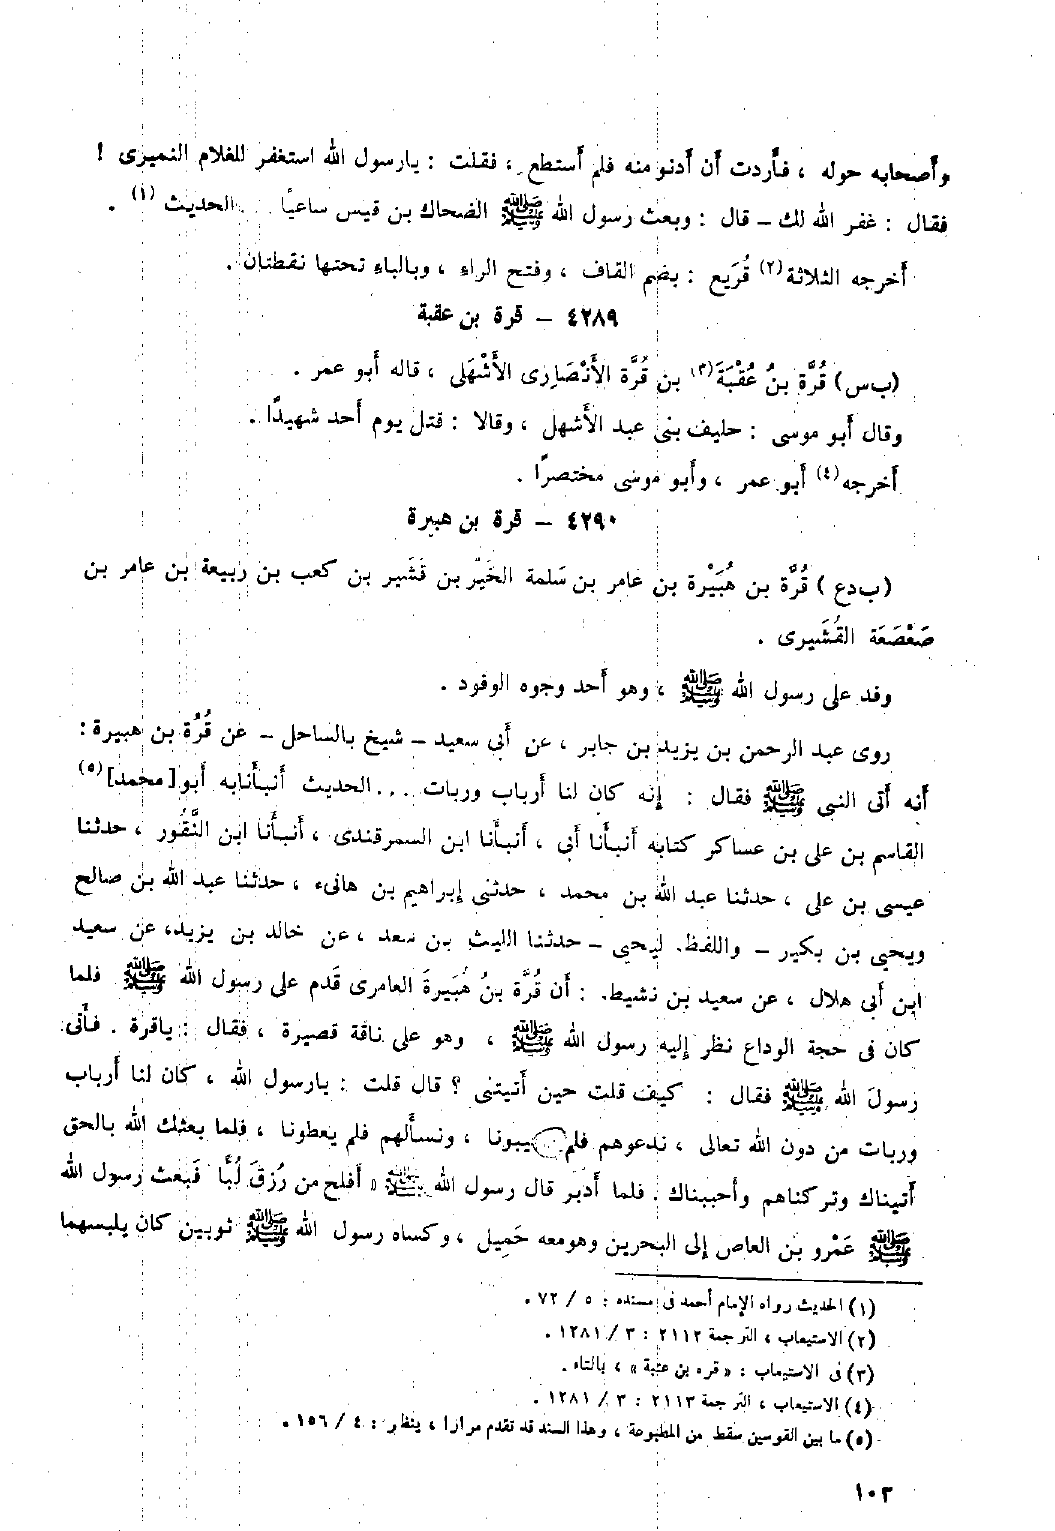 وأصحابه حوله ، فأردت أن أدنو منه فلم أستطع ، فقلت : يارسول الله استغفر للغلام النميرى !
فقال : غفر الله لك – قال : وبعث رسول الله ﷺ الضحاك بن قيس ساعيًا . . . الحديث (١) .
أخرجه الثلاثة (٢) قُرَيع : بضم القاف ، وفتح الراء ، وبالياء تحتها نقطتان .
٤٢٨٩ – قرة بن عقبة
(ب س) قُرَّة بنُ عُقْبَةَ (٣) بن قُرَّة الأَنْصَارِى الأَشْهَلى ، قاله أبو عمر .
وقال أبو موسى : حليف بنى عبد الأشهل ، وقالا : قتل يوم أحد شهيدًا .
أخرجه (٤) أبو عمر ، وأبو موسى مختصرًا .
٤٢٩٠ – قرة بن هبيرة
(ب د ع) قُرَّة بن هُبَيْرة بن عامر بن سَلمة الخَيْر بن قُشَير بن كعب بن ربيعة بن عامر بن
صَعْصَعَة القُشَيرى .
وفد على رسول الله ﷺ ، وهو أحد وجوه الوفود .
روى عبد الرحمن بن يزيد بن جابر ، عن أبى سعيد – شيخ بالساحل – عن قُرَّة بن هبيرة :
أنه أتى النبى ﷺ فقال : إنه كان لنا أرباب وربات . . . الحديث أنبأنا به أبو [محمد] (٥)
القاسم بن على بن عساكر كتابه أنبأنا أبى ، أنبأنا ابن السمرقندى ، أنبأنا ابن النَّقُور ، حدثنا
عيسى بن على ، حدثنا عبد الله بن محمد ، حدثنى إبراهيم بن هانىء ، حدثنا عبد الله بن صالح
ويحيى بن بكير – واللفظ ليحيى – حدثنا الليث بن سعد ، عن خالد بن يزيد ، عن سعيد
ابن أبى هلال ، عن سعيد بن نشيط : أن قُرَّة بنُ هُبَيرةَ العامرى قَدم على رسول الله ﷺ فلما
كان فى حجة الوداع نظر إليه رسول الله ﷺ ، وهو على ناقة قصيرة ، فقال : ياقرة . فأتى
رسولَ الله ﷺ فقال : كيف قلت حين أتيتنى ؟ قال قلت : يارسول الله ، كان لنا أرباب
وربات من دون الله تعالى ، ندعوهم فلم يجيبونا ، ونسألهم فلم يعطونا ، فلما بعثك الله بالحق
أتيناك وتركناهم وأحببناك . فلما أدبر قال رسول الله ﷺ « أفلح من رُزقَ لُبًّا فَبعث رسول الله
ﷺ عَمْرو بن العاص إلى البحرين وهو معه حَمِيل ، وكساه رسول الله ﷺ ثوبين كان يلبسهما
(١) الحديث رواه الإمام أحمد فى مسنده : ٥ / ٧٢ .
(٢) الاستيعاب ، الترجمة ٢١١٢ : ٣ / ١٢٨١ .
(٣) فى الاستيعاب : « قره بن عتبة » ، بالتاء .
(٤) الاستيعاب ، الترجمة ٢١١٣ : ٣ / ١٢٨١ .
(٥) ما بين القوسين سقط من المطبوعة ، وهذا السند قد تقدم مرارا ، ينظر : ٤ / ١٥٦ .
١٠٣